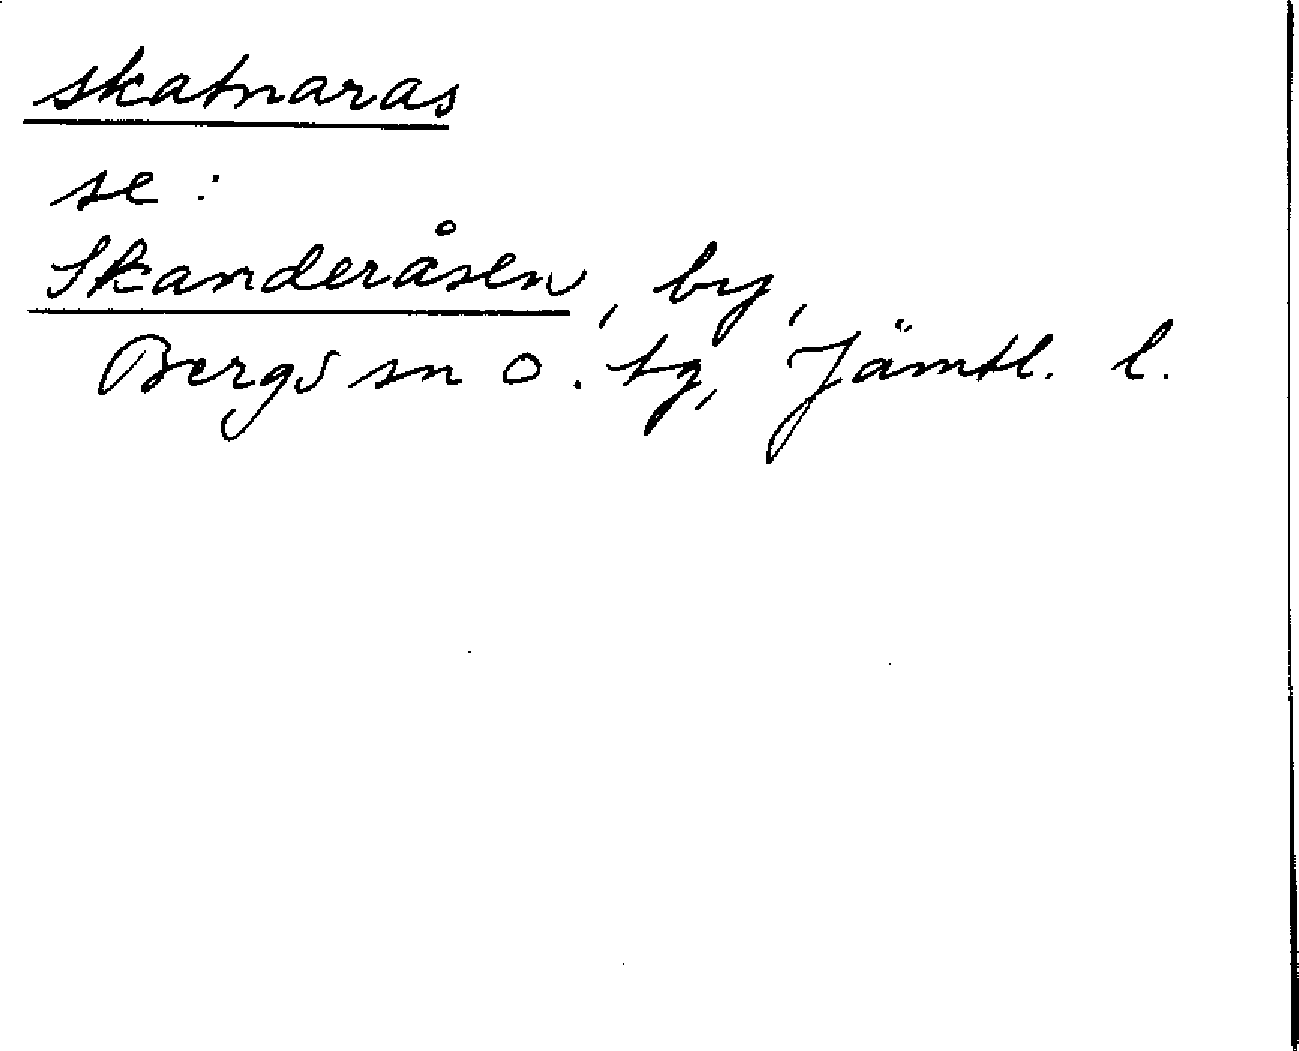 skatnaras
se:
Skanderåsen, by,
Bergs sn o. tg, Jämtl. l.